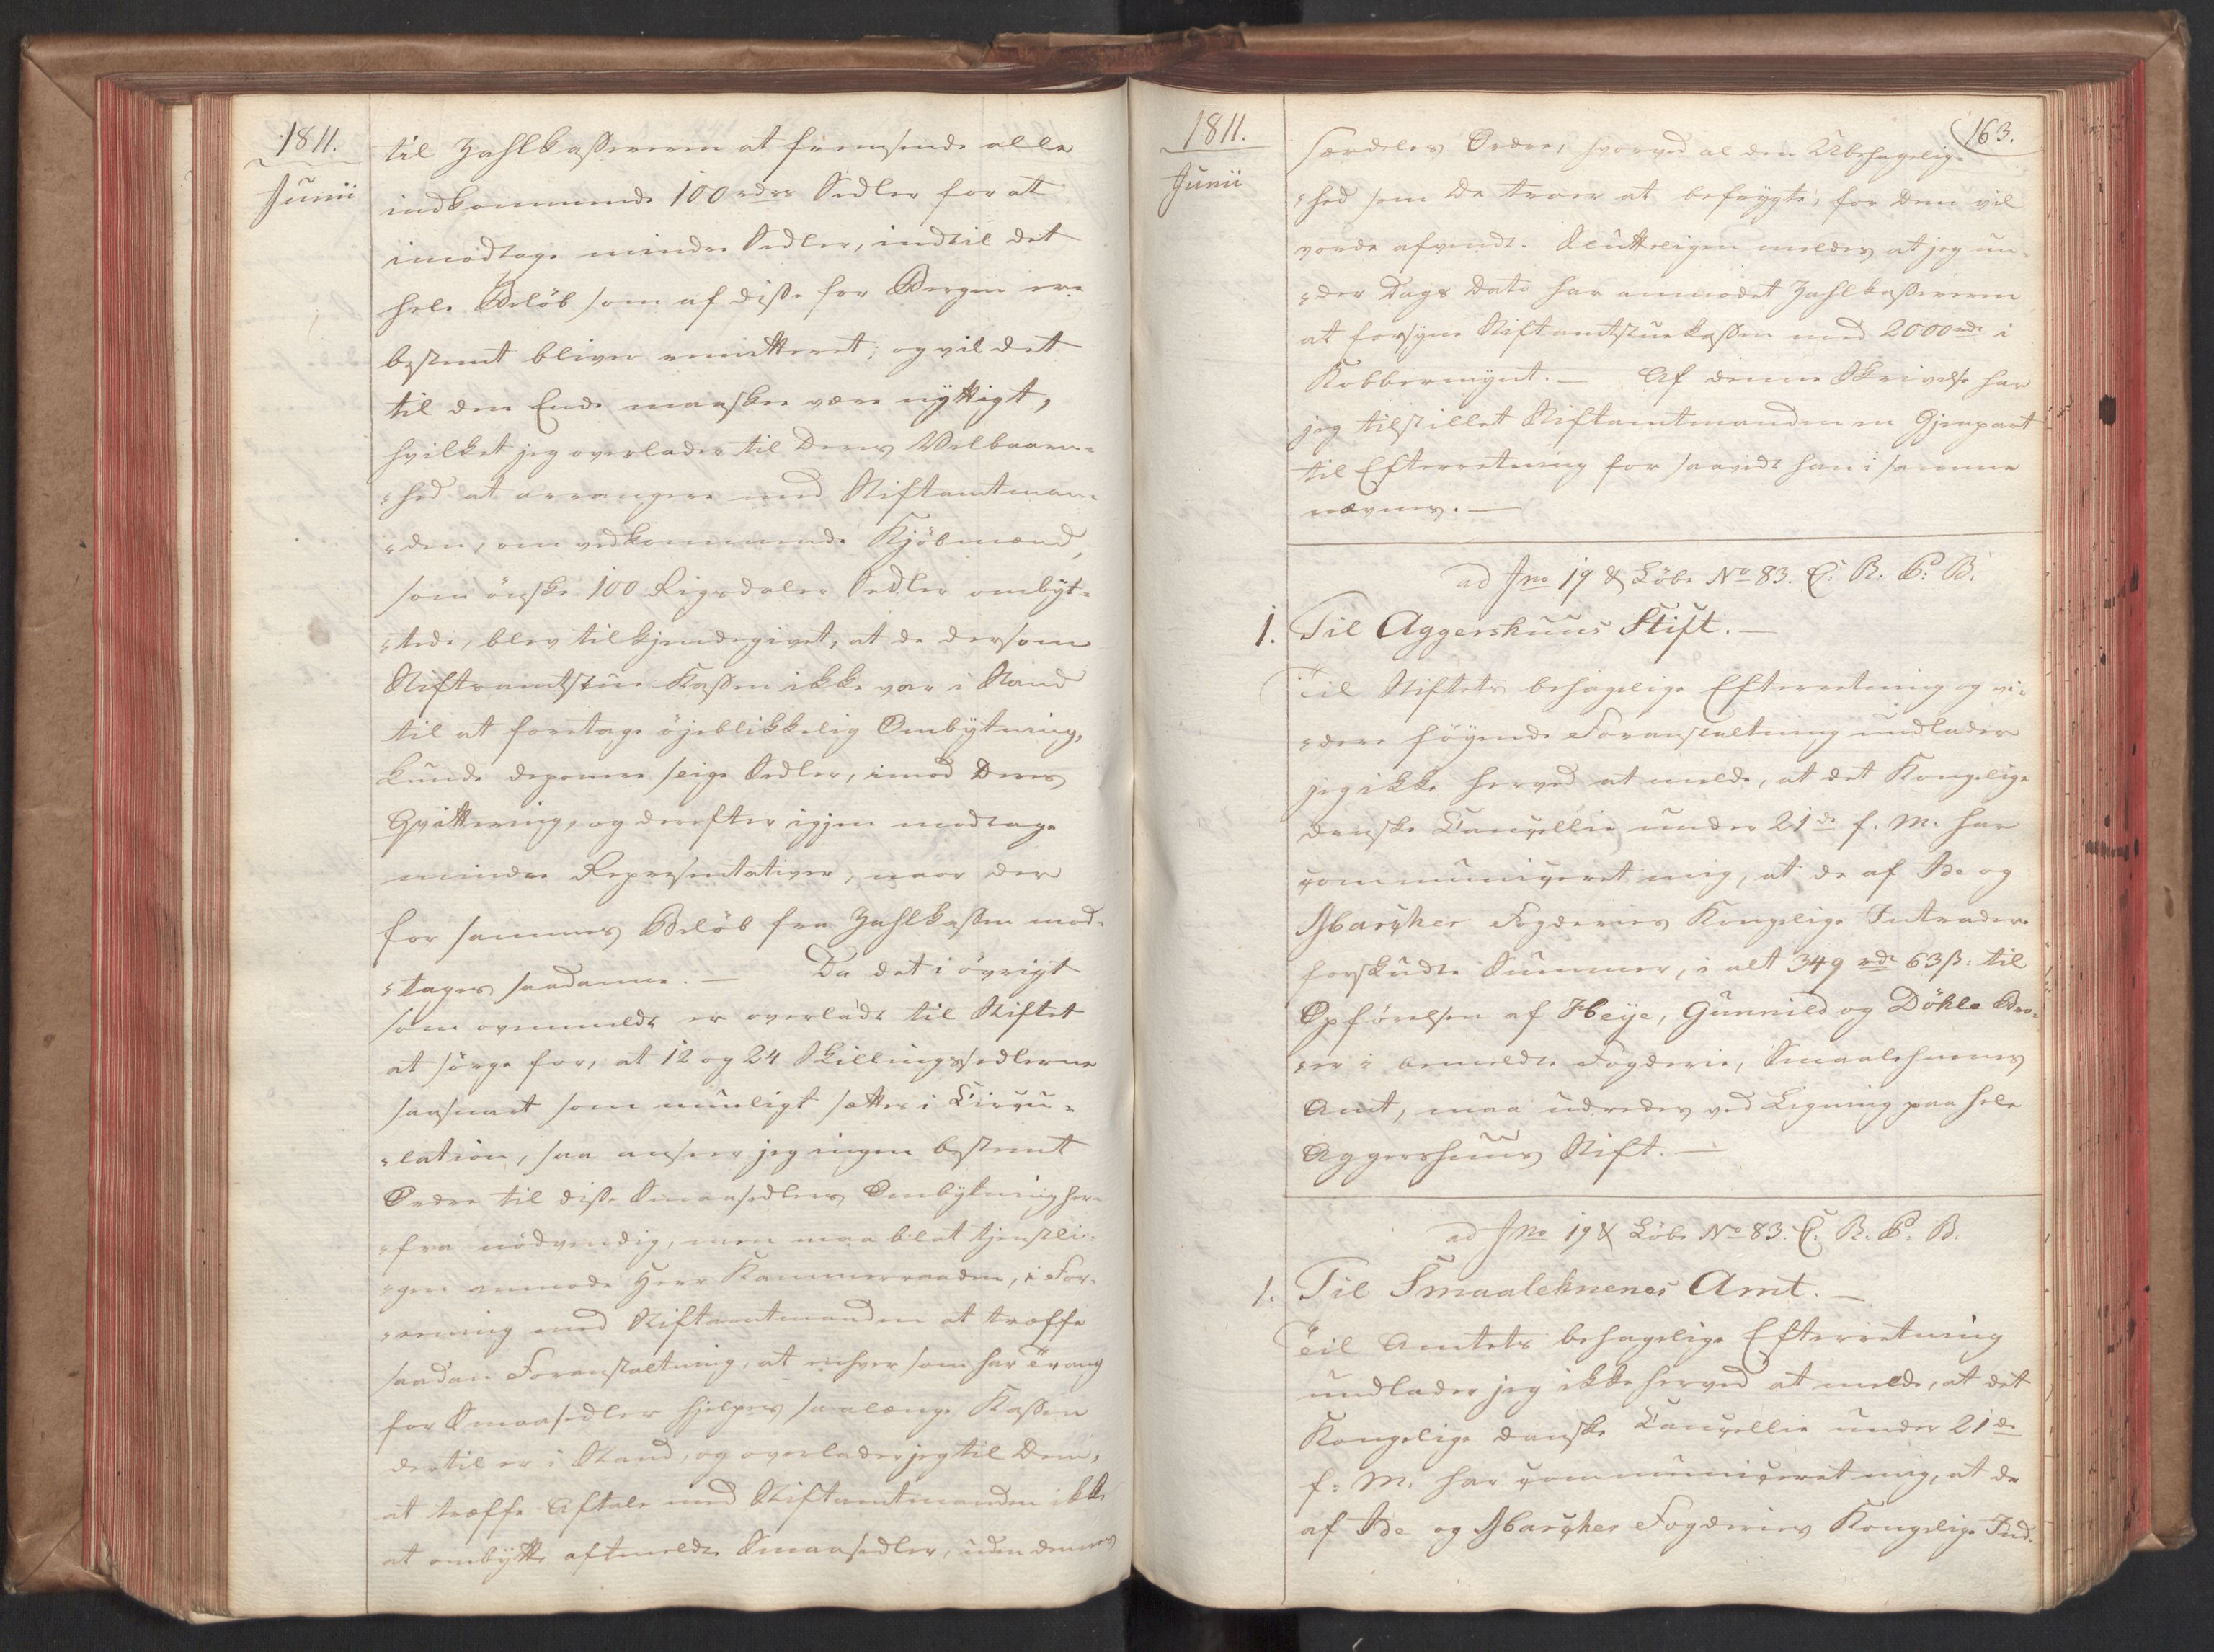 1811.
Junii
til Zahlkassereren at fremsende alle
indkommende 100 rdrs Sedler for at
imodtage mindre Sedler, indtil det
hele Beløb som af disse for Bergen ere
bestemt bliver remitteret; og vil det
til den Ende maaskee være nyttigt,
hvilket jeg overlader til Deres Velbaaren-
hed at arrangere med Stiftamtman-
den, om vedkommende Kjøbmænd,
som ønske 100 Rigsdaler Sedler ombyt-
tede, blev tilkjendegivet, at de dersom
Stiftamtstue Kassen ikke var i Stand
til at foretage øjeblikkelig Ombytning,
kunde deponere slige Sedler, imod Deres
Qvittering, og derefter igjen modtage
mindre Repræsentativer, naar der
for sammes Beløb fra Zahlkassen mod-
tages saadanne. — Da det i øvrigt
som ovenmeldt er overladt til Stiftet
at sørge for, at 12 og 24 Skillingssedlerne
saasnart som mueligt sættes i Circu-
lation, saa anseer jeg ingen bestemt
Ordre til disse Smaasedlers Ombytning her-
fra nødvendig, men maa blot tjenstli-
gen anmode Herr Kammerraaden, i For-
ening med Stiftamtmanden at træffe
saadan Foranstaltning, at enhver som har Trang
for Smaasedler hjelpes saalænge Kassen
dertil er i Stand, og overlader jeg til Dem,
at træffe Aftale med Stiftamtmanden ikke
at ombytte oftmeldte Smaasedler, uden dennes
1811.
Junii
163.
særdeles Ordre, hvorved al den Ubehagelig-
hed som De troer at befrygte, for Dem vil
vorde afvendt. Slutteligen meldes at jeg un-
der Dags Dato har anmodet Zahlkasseren
at forsyne Stiftamtstuekassen med 2000 rdr i
Kobbermynt. — Af denne Skrivelse har
jeg tilstillet Stiftamtmanden en Gjenpart
til Efterretning for saavidt han i samme
nævnes. —
ad Jno 19 & Löbe No 83. C. R. P. B.
1. Til Aggershuus Stift. —
Til Stiftets behagelige Efterretning og vi-
dere føyende Foranstaltning undlader
jeg ikke herved at melde, at det Kongelige
danske Cancellie under 21de f. M. har
communiceret mig, at de af Ide og
Marcher Fogderies Kongelige Intrader
forskudte Summer, i alt 349 rdr 63 ß. til
Opførelsen af Heye, Gunnild og Döhle Bro-
er i bemeldte Fogderie, Smaalehnenes
Amt, maa udredes ved Ligning paa hele
Aggershuus Stift. —
ad Jno 19 & Löbe No 83. C. R. P. B.
1. Til Smaalehnenes Amt. —
Til Amtets behagelige Efterretning
undlader jeg ikke herved at melde, at det
Kongelige danske Cancellie under 21de
f. M. har communiceret mig, at de
af Ide og Marcher Fogderies Kongelige Ind-